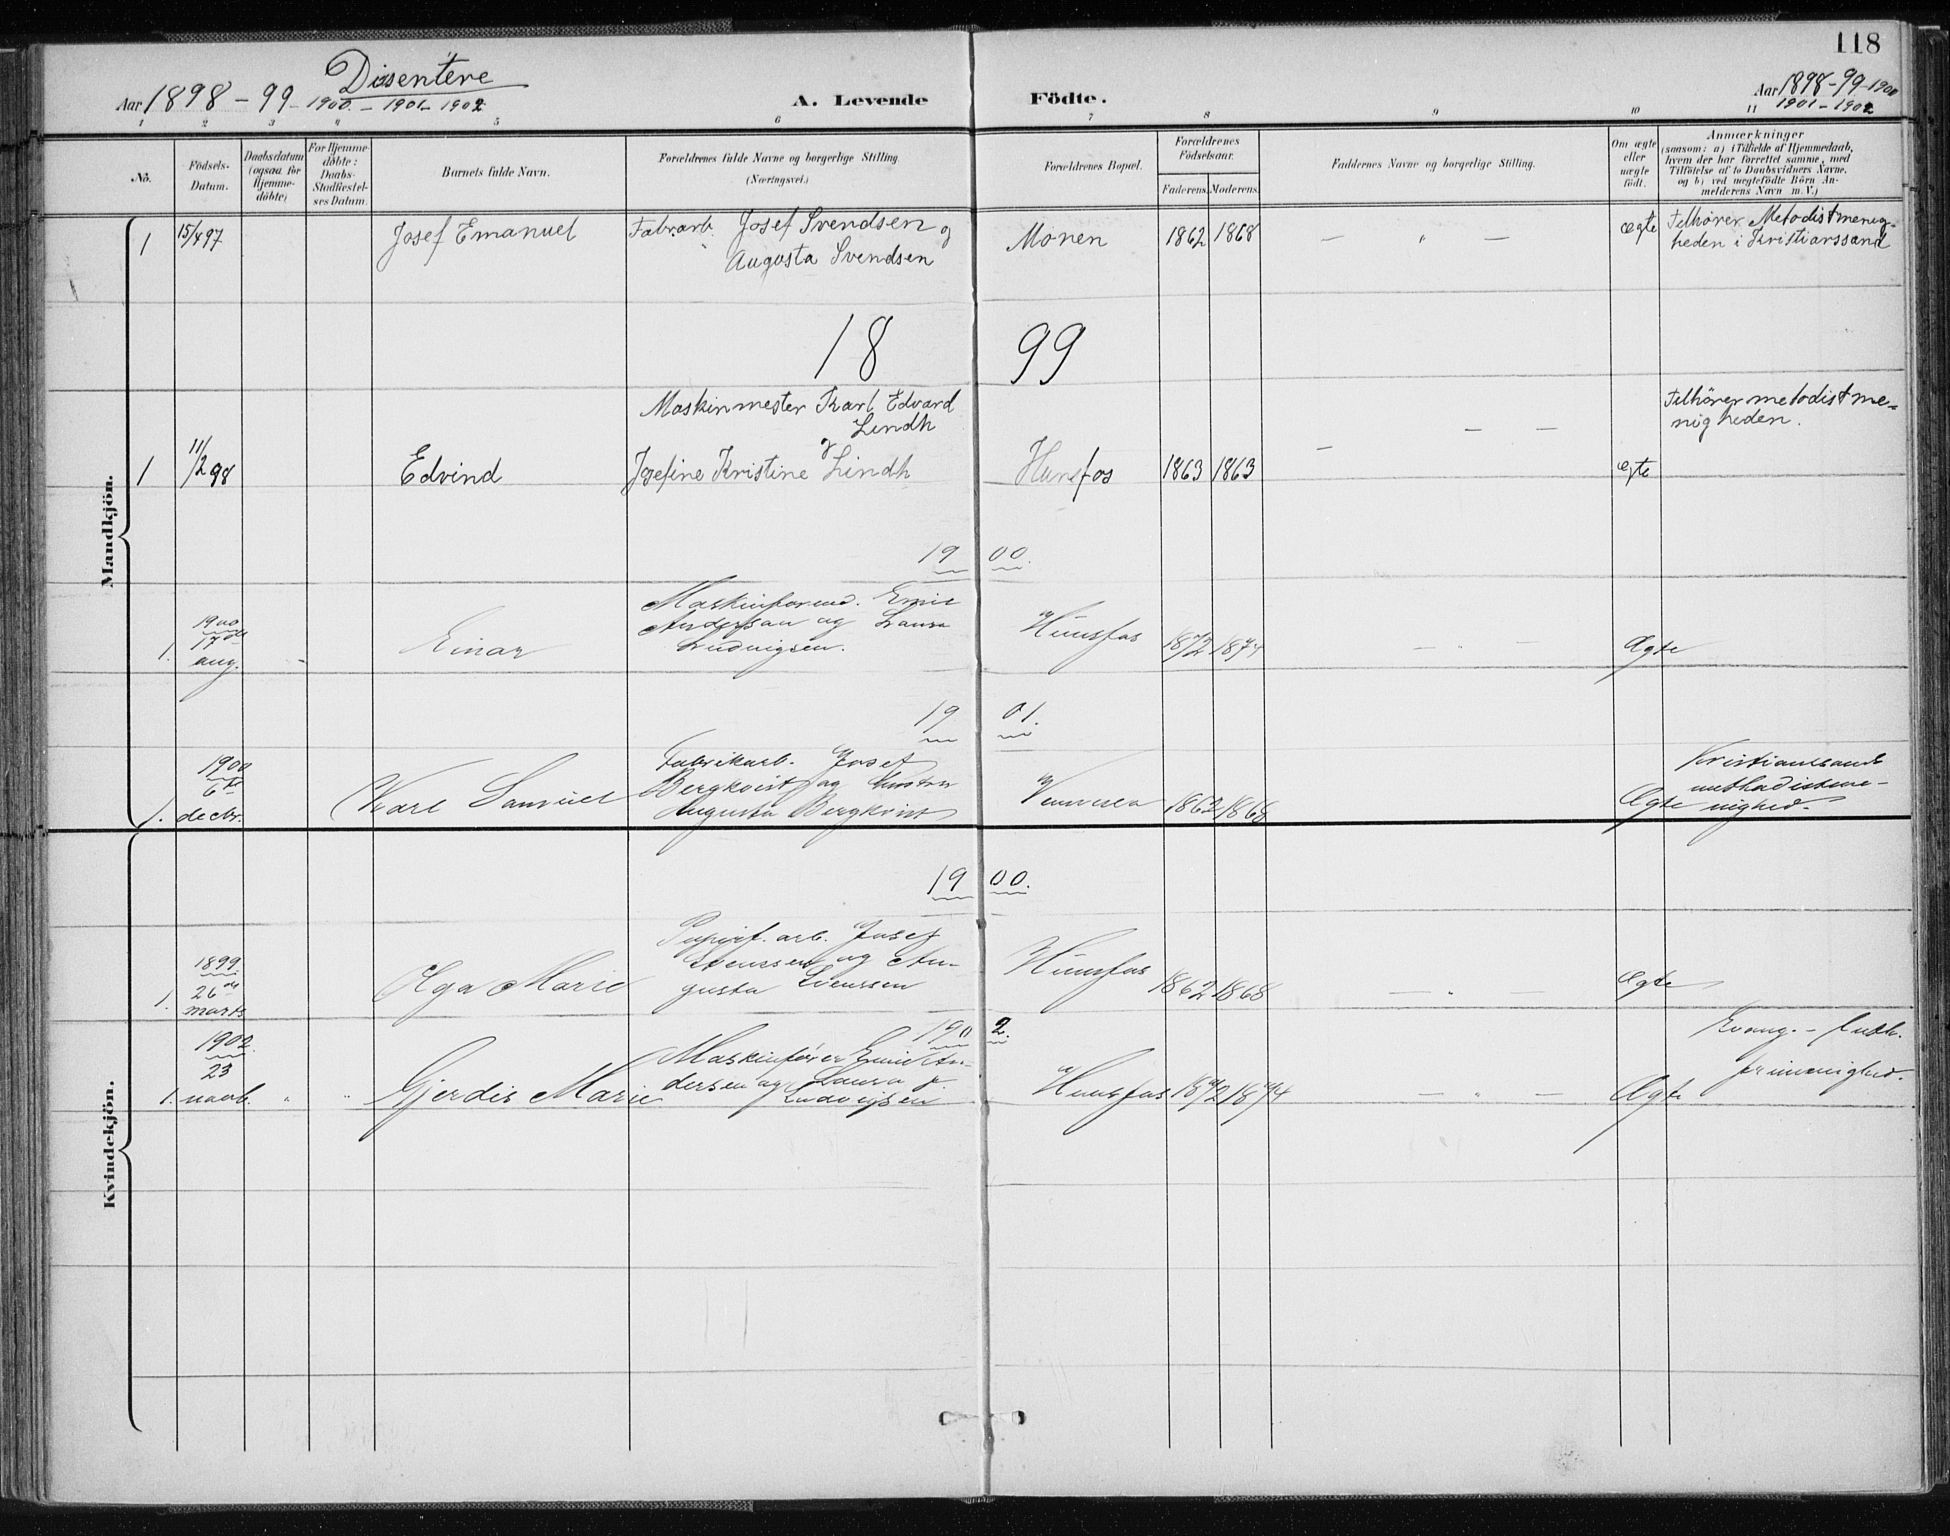 118
Aar 1898 - 99 - 1900 - 1901 - 1902
Disentere
A. Levende Födte.
Aar 1898 - 99 - 1900
1901 - 1902
1 2 3 4 5 6 7 8 9 10 11
No.
Födsels-
Datum.
Daabsdatum
(ogsaa for
Hjemme-
döbte)
For Hjemme-
döbte:
Daabs-
Stadfæstel-
ses Datum.
Barnets fulde Navn.
Forældrenes fulde Navne og borgerlige Stilling
(Næringsvei.)
Forældrenes Bopæl.
Forældrenes
Födselsaar.
Faderens. Moderens.
Faddernes Navne og borgerlige Stilling.
Om ægte
eller
uægte
født.
Anmærkninger
(saasom: a) i Tilfælde af Hjemmedaab,
hvem der har forrettet samme, med
Tilföielse af to Daabsvidners Navne,
og b) ved uægtefödte Börn An-
melderens Navn m. V.)
Mandkjön.
1 15/4 97 Josef Emanuel Fabrarb. Josef Svendsen og Monen 1862 1868 — " — ægte Tilhører Metodistmenig-
Augusta Svendsen heden i Kristianssand
18 99
Maskinmester Karl Edvard Tilhører metodistme-
Lindh — — nigheden.
og
1 11/2 98 Edvind Josefine Kristine Lindh Hunsfos 1863 1863 — ægte
19 00.
1900 Maskinformd. Emil
17de Andersen og Laura Hunsfos
1. aug. Einar Ludvigsen. 1872 1874 — " — Ægte
19 01.
1900 Fabrikarb. Josef Kristianssands
6te Bergkvist og hustru Vennesla methodistme-
1. decbr. Karl Samuel Augusta Bergkvist 1862 1868 Ægte nighed.
Kvindekjön.
19 00.
1899 Papirf. arb. Josef
26de Svenssen og Au- Hunsfos
1. marts Olga Marie gusta Svenssen 1862 1868 — " — Ægte
190 2.
1902. Maskinfører Emil An- Evang. - luth.
23 dersen og Laura f. frimenighed.
1. novb. " " Gjerdis Marie Ludvigsen Hunsfos 1872 1874 — " — Ægte